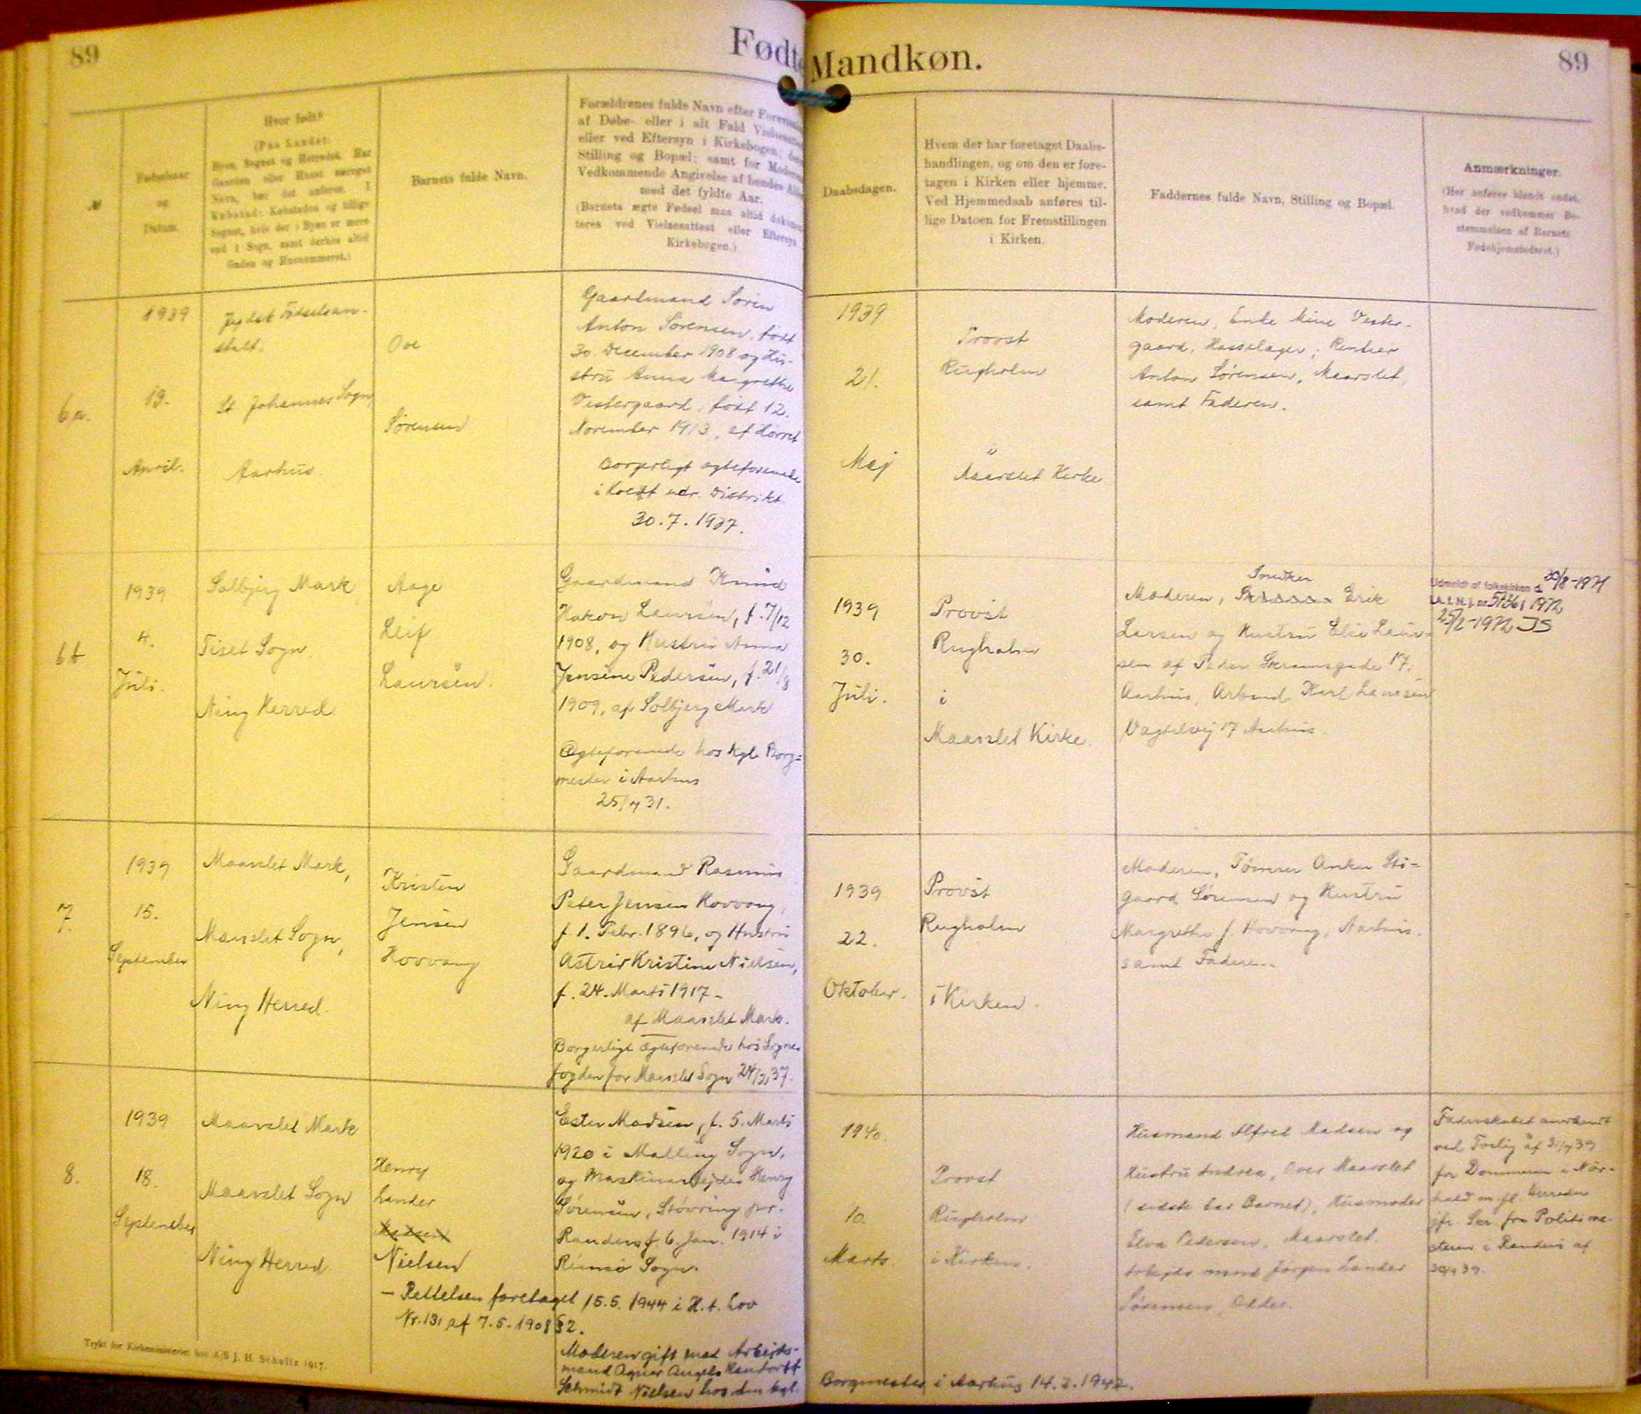 89
Født
Mandkøn.
89
№
Fødselsaar
og
Datum.
Hvor født?
(Paa Landet:
Byen, Sognet og Herredet. Har
Gaarden eller Huset særeget
Navn, bør det anføres. I
Købstad: Købstadens og tillige
Sognet, hvis der i Byen er mere
end 1 Sogn, samt derhos altid
Gaden og Husnummeret.)
Barnets fulde Navn.
Forældrenes fulde Navn efter
af Døbe- eller i alt Fald
eller ved Eftersyn i Kirkebogen;
Stilling og Bopæl; samt for
Vedkommende Angivelse af hendes
med det fyldte Aar.
(Barnets ægte Fødsel maa altid
teres ved Vielsesattest eller Eftersyn
Kirkebogen.)
Daabsdagen.
Hvem der har foretaget Daabs-
handlingen, og om den er fore-
tagen i Kirken eller hjemme.
Ved Hjemmedaab anføres til-
lige Datoen for Fremstillingen
i Kirken.
Faddernes fulde Navn, Stilling og Bopæl.
Anmærkninger.
(Her anføres blandt andet,
hvad der vedkommer Be-
stemmelsen af Barnets
Fødehjemstedsret.)
6a.
1939
19.
April.
Jydsk Fødselsan-
stalt.
St Johannes Sogn,
Aarhus.
Ove
Sørensen
Gaardmand Søren
Anton Sørensen, født
30. December 1908 og Hu-
stru Anna Margrethe
Vestergaard, født 12.
November 1913, af Hørret
Borgerligt
30.7.1937.
1939
21.
Maj
Provst
Rugholm
Maarslet Kirke
Moderen, Enke Mine Vester-
gaard, Hasselager; Rentier
Anton Sørensen, Maarslet,
samt Faderen.
6b
1939
4.
Juli.
Solbjerg Mark
Tiset Sogn
Ning Herred
Aage
Leif
Laursen.
Gaardmand Knud
Hakon Laursen, f. 7/12
1908, og Hustru Anna
Jensine Pedersen, f. 21/8
1909, af Solbjerg Mark
Ægteforende hos kgl. Borg=
mester i Aarhus
25/4 31.
1939
30.
Juli.
Provst
Rugholm
i
Maarslet Kirke.
Moderen, Erik
Larsen og Hustru Else Laur-
sen af Peder Skramsgade 17.
Aarhus, Arbmd. Karl Laursen
Vagtelvej 17 Aarhus.
Udmeldt af folkekirken d. 20/8-1971
25/2-1972 JS
7.
1939
15.
September
Maarslet Mark,
Maarslet Sogn,
Ning Herred.
Kristen
Jensen
Hovvang
Gaardmand Rasmus
Peter Jensen Hovvang,
f. 1. Febr. 1896, og Hustru
Astrid Kristine Nielsen,
f. 24. Marts 1917 -
af Maarslet Mark.
Borgerligt ægteforende hos Sogne-
fogden for Maarslet Sogn
1939
22.
Oktober.
Provst
Rugholm
i Kirken.
Moderen, Tømrer Anker Sti=
gaard Sørensen og Hustru
Margrethe f. Hovvang, Aarhus.
samt Faderen.
8.
1939
18.
September
Maarslet Mark
Maarslet Sogn
Ning Herred
Henry
Lander
Nielsen
— Rettelsen foretaget 15.5.1944 i H.t. Lov
Nr. 131 af 7.5.1908 §2.
Ester Madsen, f. 5. Marts
1920 i Malling Sogn,
og Maskinarbejder Henry
Sørensen, Støvring pr.
Randers f. 6. Jan. 1914 i
Rimsø Sogn.
Moderen gift med Arbejds-
mand Agner Angelo
Schmidt Nielsen hos den kgl.
Borgmester i Aarhus 14.2.1942.
1940.
10.
Marts.
Provst
Rugholm
i Kirken.
Husmand Alfred Madsen og
Hustru Andrea, Over Maarslet
(sidste bar Barnet), Husmoder
Elva Pedersen, Maarslet.
Arbejdsmand Jørgen Lander
Sørensen, Odder.
Faderskabet anerkendt
ved Forlig af
for Dommeren i Nør-
hald m. fl. Herreder
jfr. Skr. fra Politime-
steren i Randers af
Trykt for Kirkeministeriet hos A/S J. H. Schultz 1917.